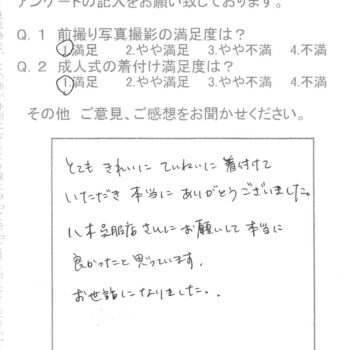 アンケートの記入をお願い致しております。
Q.1 前撮り写真撮影の満足度は？
1.満足 2.やや満足 3.やや不満 4.不満
Q.2 成人式の着付け満足度は？
1.満足 2.やや満足 3.やや不満 4.不満
その他 ご意見、ご感想をお聞かせください。
とても きれいに ていねいに 着付けて
いただき 本当に ありがとうございました。
八木呉服店さんに お願いして 本当に
良かったと思っています。
お世話になりました。